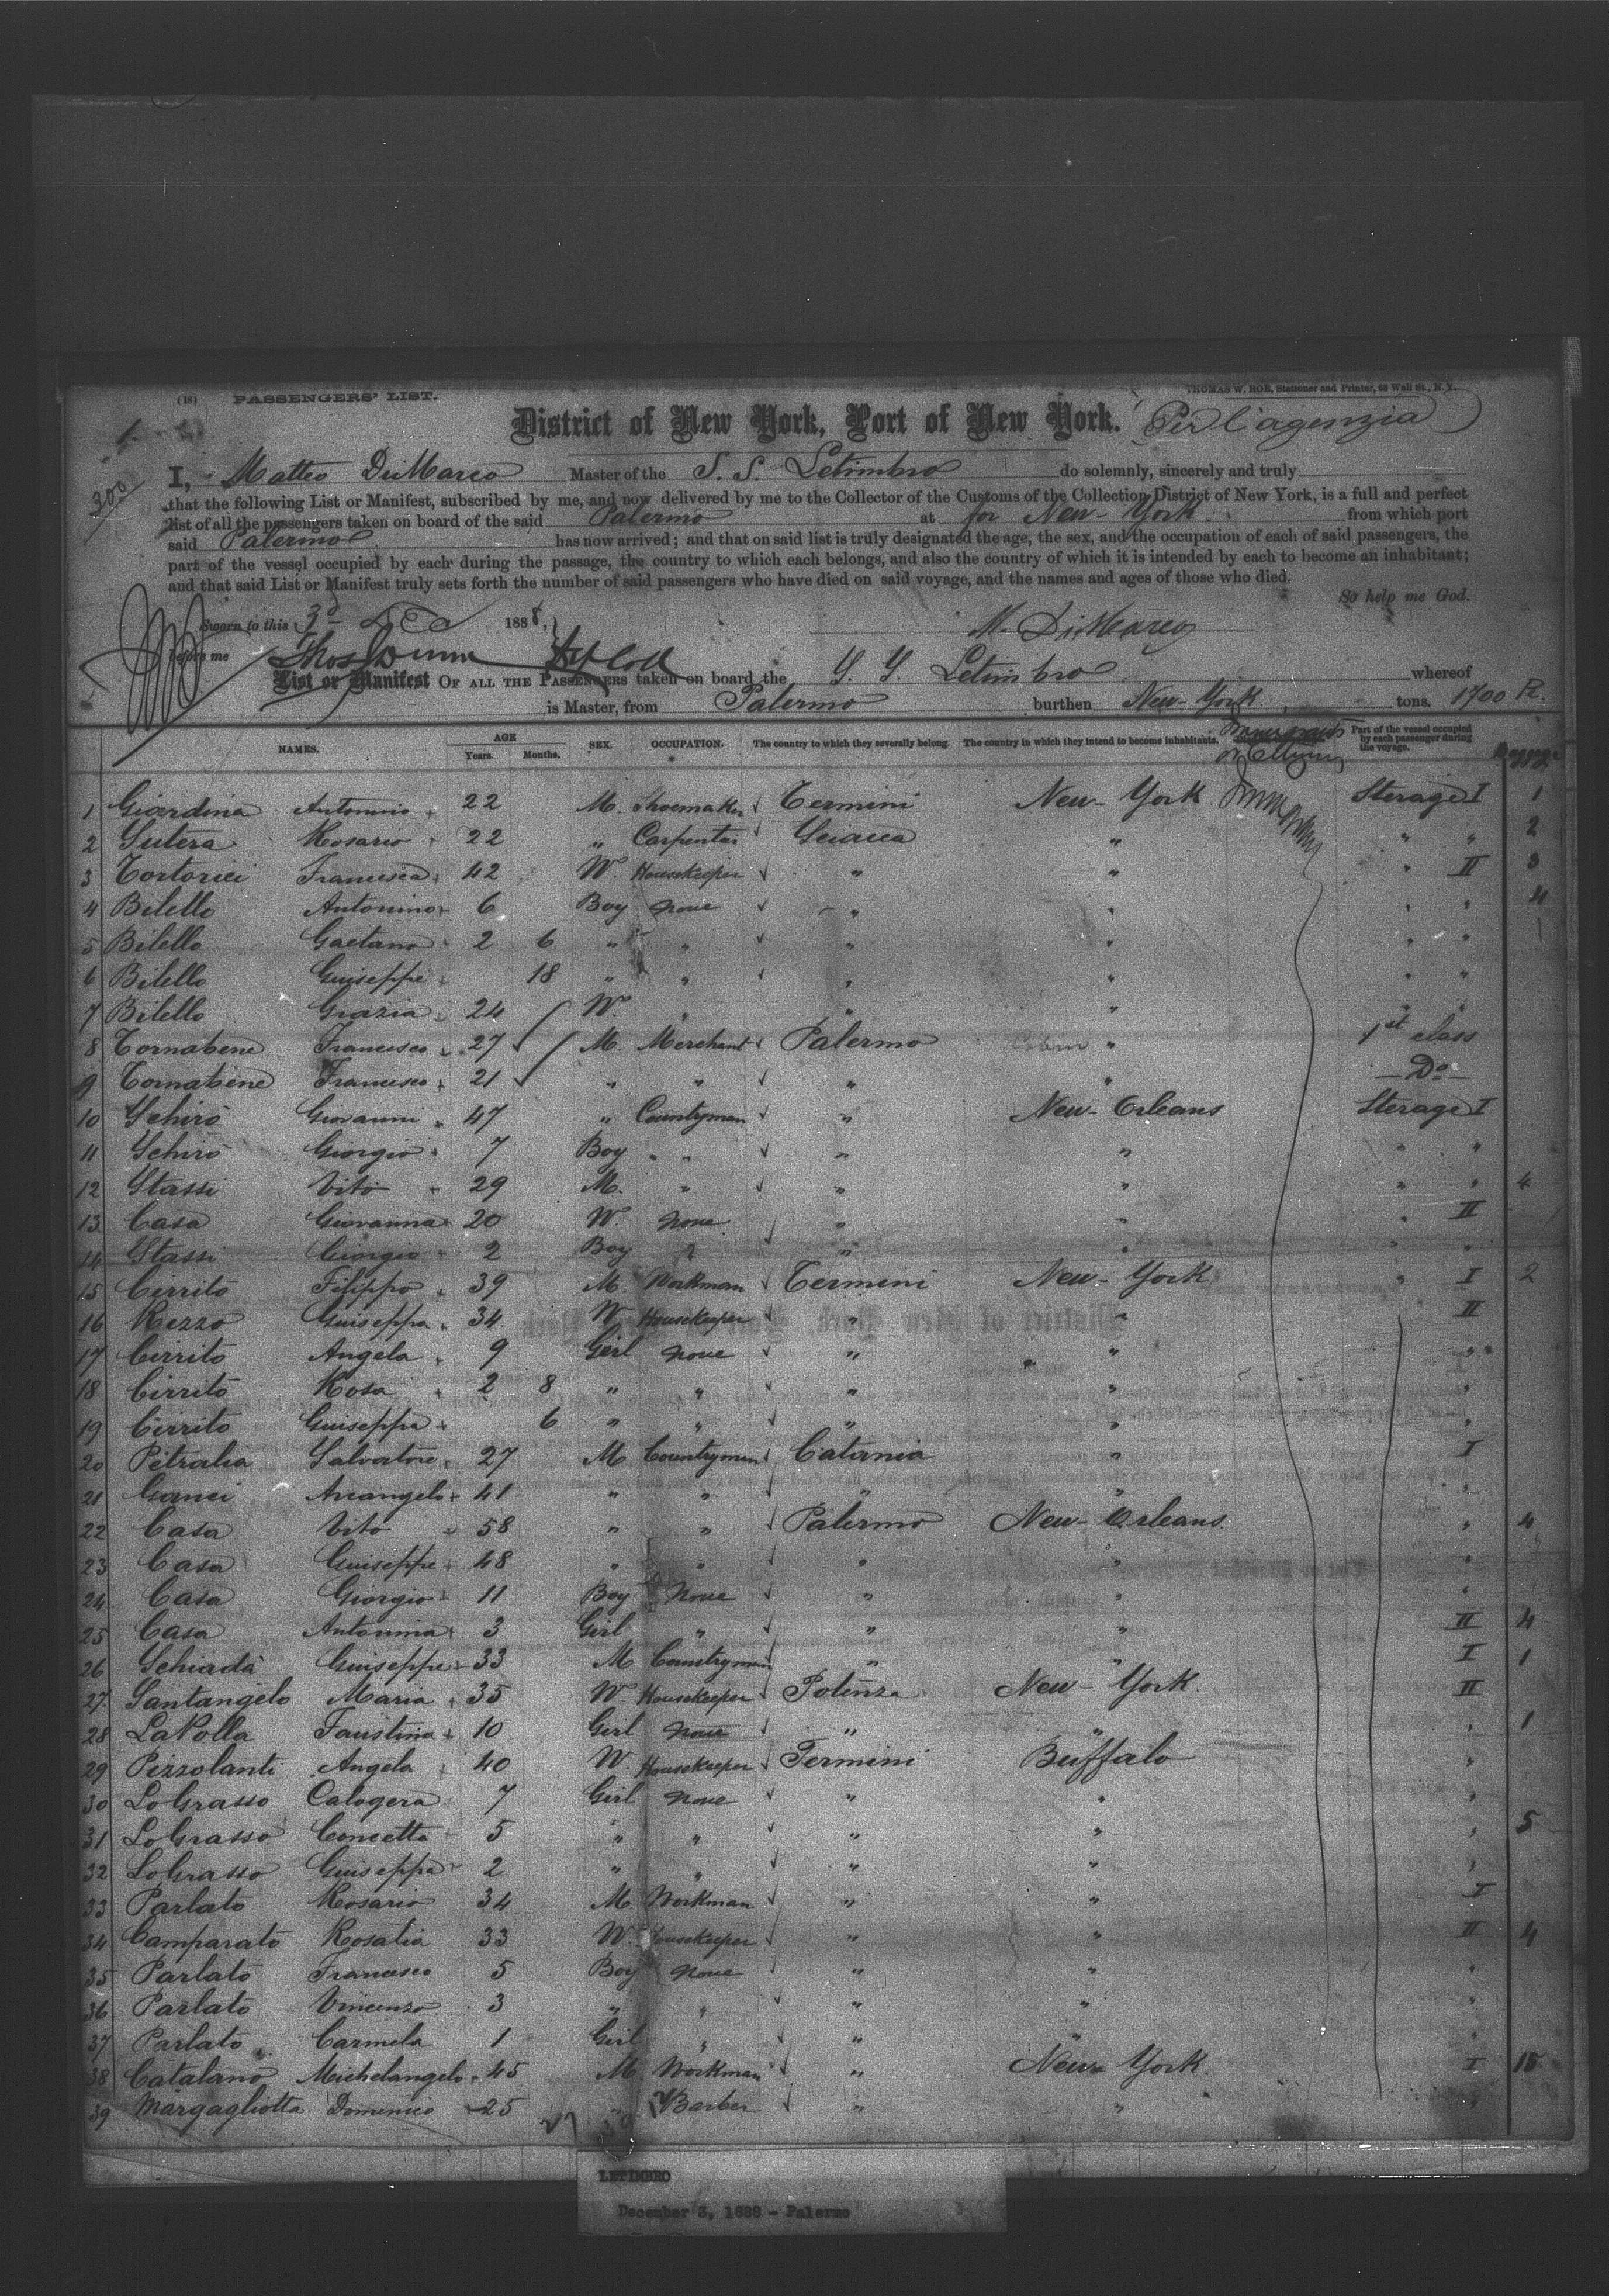 (18) PASSENGERS' LIST.
THOMAS W. ROE, Stationer and Printer, 68 Wall St., N. Y.
District of New York, Port of New York. Per l'agenzia
1.
300
I, Matteo DiMarco Master of the S. S. Letimbro do solemnly, sincerely and truly
that the following List or Manifest, subscribed by me, and now delivered by me to the Collector of the Customs of the Collection District of New York, is a full and perfect
list of all the passengers taken on board of the said Palermo at for New-York from which port
said Palermo has now arrived; and that on said list is truly designated the age, the sex, and the occupation of each of said passengers, the
part of the vessel occupied by each during the passage, the country to which each belongs, and also the country of which it is intended by each to become an inhabitant;
and that said List or Manifest truly sets forth the number of said passengers who have died on said voyage, and the names and ages of those who died.
So help me God.
Sworn to this 3d Dec 1888,
M. DiMarco
before me Thos Dunn
List or Manifest OF ALL THE PASSENGERS taken on board the S. S. Letimbro whereof
is Master, from Palermo burthen New-York tons. 1700 R.
NAMES. AGE Years. Months. SEX. OCCUPATION. The country to which they severally belong. The country in which they intend to become inhabitants. Part of the vessel occupied by each passenger during the voyage.
1 Giardina Antonino 22 M. Shoemaker Termini New-York Sterage I 1
2 Sutera Rosario 22 " Carpenter Sciacca " " " 2
3 Tortorici Francesca 42 W. Housekeeper " " " II 3
4 Bilello Antonino 6 Boy none " " " " 4
5 Bilello Gaetano 2 6 " " " " " "
6 Bilello Guiseppe 18 " " " " " "
7 Bilello Grazia 24 W. " " " "
8 Tornabene Francesco 27 M. Merchant Palermo " 1st class
9 Tornabene Francesco 21 " " " " Do
10 Schirò Giovanni 47 " Countryman " New-Orleans Sterage I
11 Schirò Giorgio 7 Boy " " " " "
12 Stassi Vito 29 M. " " " " " 4
13 Casa Giovanna 20 W. none " " " II
14 Stassi Giorgio 2 Boy " " " " "
15 Cirrito Filippo 39 M. Workman Termini New-York " I 2
16 Rizzo Guiseppa 34 W Housekeeper " " II
17 Cirrito Angela 9 Girl none " " "
18 Cirrito Rosa 2 8 " " " " "
19 Cirrito Guiseppa 6 " " " " "
20 Pitralia Salvatore 27 M Countryman Catania " I
21 Ganci Arcangelo 41 " " " " "
22 Casa Vito 58 " " Palermo New-Orleans " 4
23 Casa Guiseppe 48 " " " " "
24 Casa Giorgio 11 Boy None " " "
25 Casa Antonina 3 Girl " " " II 4
26 Schiadà Guiseppe 33 M Countryman " " I 1
27 Santangelo Maria 35 W. Housekeeper Potenza New-York. II
28 LaPolla Faustina 10 Girl none " " " 1
29 Pizzolanti Angela 40 W. Housekeeper Termini Buffalo "
30 LoGrasso Calogera 7 Girl none " " "
31 LoGrasso Concetta 5 " " " " " 5
32 LoGrasso Guiseppa 2 " " " " "
33 Parlato Rosario 34 M. Workman " " I
34 Camparato Rosalia 33 W. Housekeeper " " II 4
35 Parlato Francesco 5 Boy none " " "
36 Parlato Vincenzo 3 " " " " "
37 Parlato Carmela 1 Girl " " " "
38 Catalano Michelangelo 45 M Workman " New-York. I 15
39 Margagliotta Domenico 25 " Barber " " "
27
LETIMBRO
December 3, 1888 - Palermo